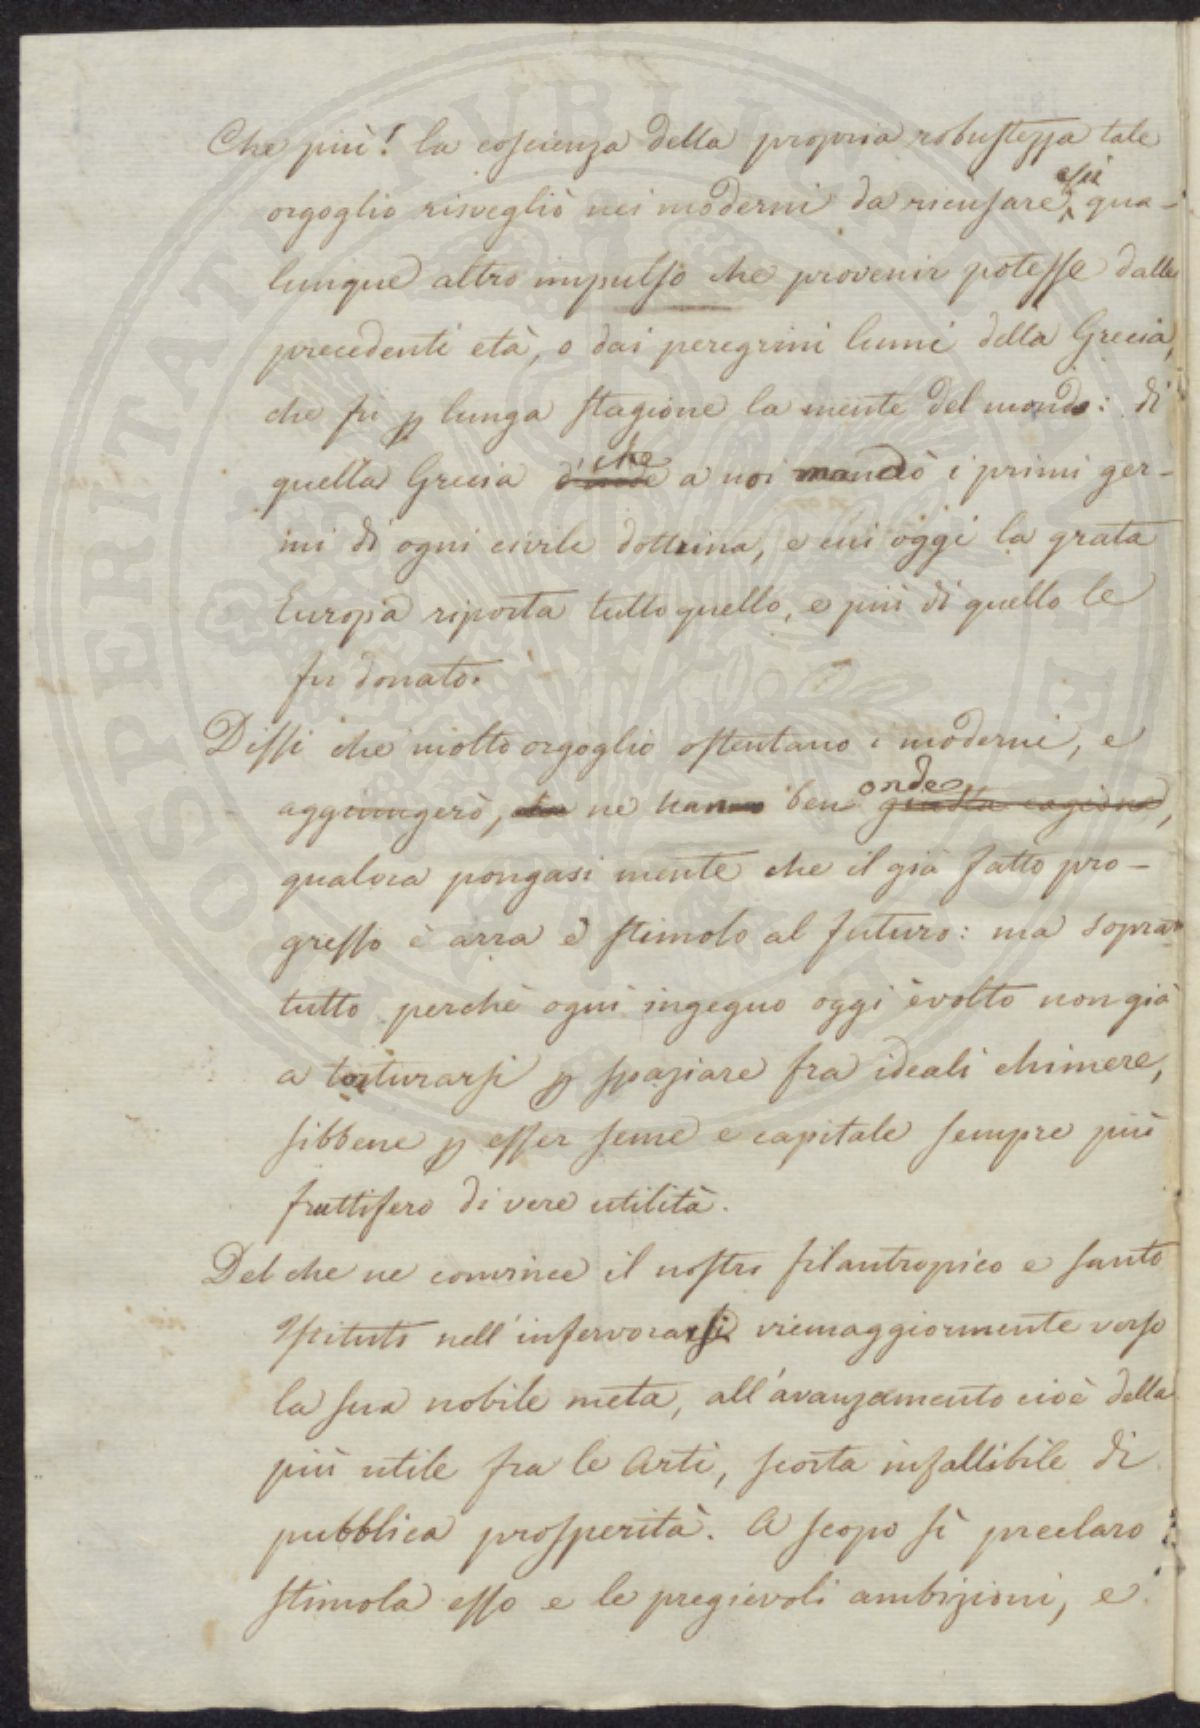 Che più! la coscienza della propria robustezza tale
orgoglio risvegliò nei moderni da ricusare essi qua-
lunque altro impulso che provenir potesse dalle
precedenti età, o dai peregrini lumi della Grecia,
che fu p lunga stagione la mente del mondo: di
quella Grecia che a noi mandò i primi ger-
mi di ogni civile dottrina, e cui oggi la grata
Europa riporta tutto quello, e più di quello le
fu donato.
Dissi che molto orgoglio ostentano i moderni, e
aggiungerò, ne hanno ben onde giusta cagione,
qualora pongasi mente che il già fatto pro-
gresso è arra e stimolo al futuro: ma sopra
tutto perchè ogni ingegno oggi è volto non già
a torturarsi p spaziare fra ideali chimere,
sibbene p esser seme e capitale sempre più
fruttifero di vere utilità.
Del che ne convince il nostro filantropico e santo
Istituto nell'infervorarsi viemaggiormente verso
la sua nobile meta, all'avanzamento cioè della
più utile fra le Arti, scorta infallibile di
pubblica prosperità. A scopo sì preclaro
stimola esso e le pregievoli ambizioni, e
PUBLICA
PROSPERITATI